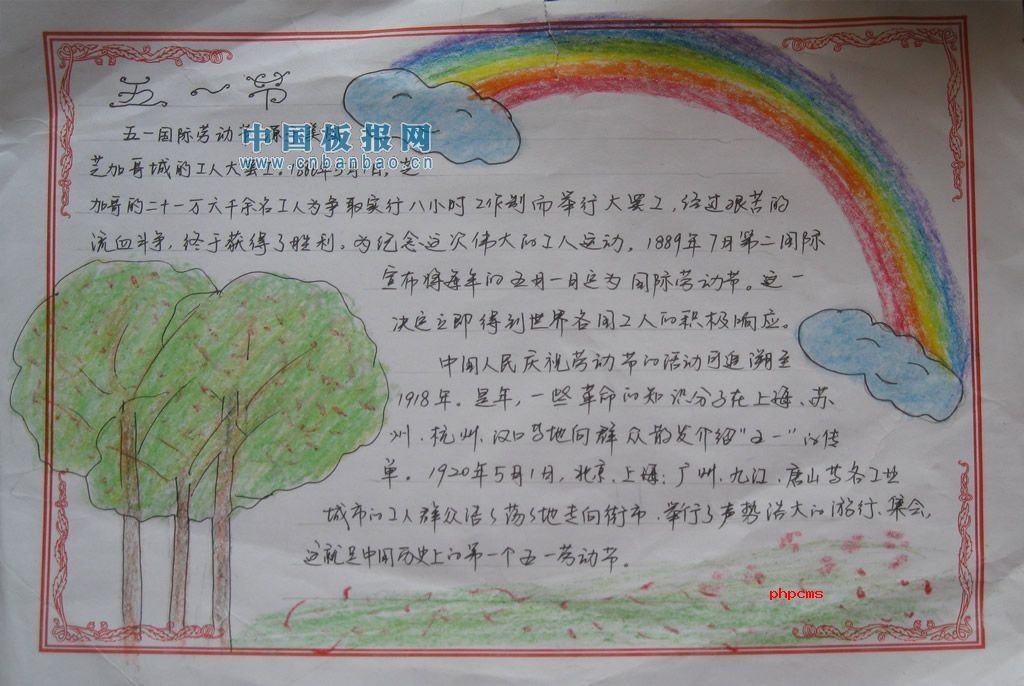 五一节
五一国际劳动节
中国板报网
www.cnbanbao.cn
芝加哥城的工人大罢工。1886年5月1日，芝
加哥的二十一万六千余名工人为争取实行八小时工作制而举行大罢工，经过艰苦的
流血斗争，终于获得了胜利。为纪念这次伟大的工人运动，1889年7月第二国际
宣布将每年的五月一日定为国际劳动节。这一
决定立即得到世界各国工人的积极响应。
中国人民庆祝劳动节的活动可追溯至
1918年。是年，一些革命的知识分子在上海、苏
州、杭州、汉口等地向群众散发介绍“五一”的传
单。1920年5月1日，北京、上海；广州、九江、唐山等各工业
城市的工人群众浩浩荡荡地走向街市、举行了声势浩大的游行、集会，
这就是中国历史上的第一个五一劳动节。
phpcms